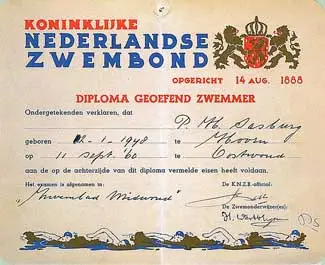 KONINKLIJKE
NEDERLANDSE
ZWEMBOND
OPGERICHT 14 AUG. 1888
DIPLOMA GEOEFEND ZWEMMER
Ondergetekenden verklaren, dat P. H. Sasburg
geboren 12-1-1948 te Hoorn
op 11 Sept. '60 te Oostwoud
aan de op de achterzijde van dit diploma vermelde eisen heeft voldaan.
Het examen is afgenomen in: De K.N.Z.B.-official:
"Zwembad Midwoud"
De Zwemonderwijzer(es):